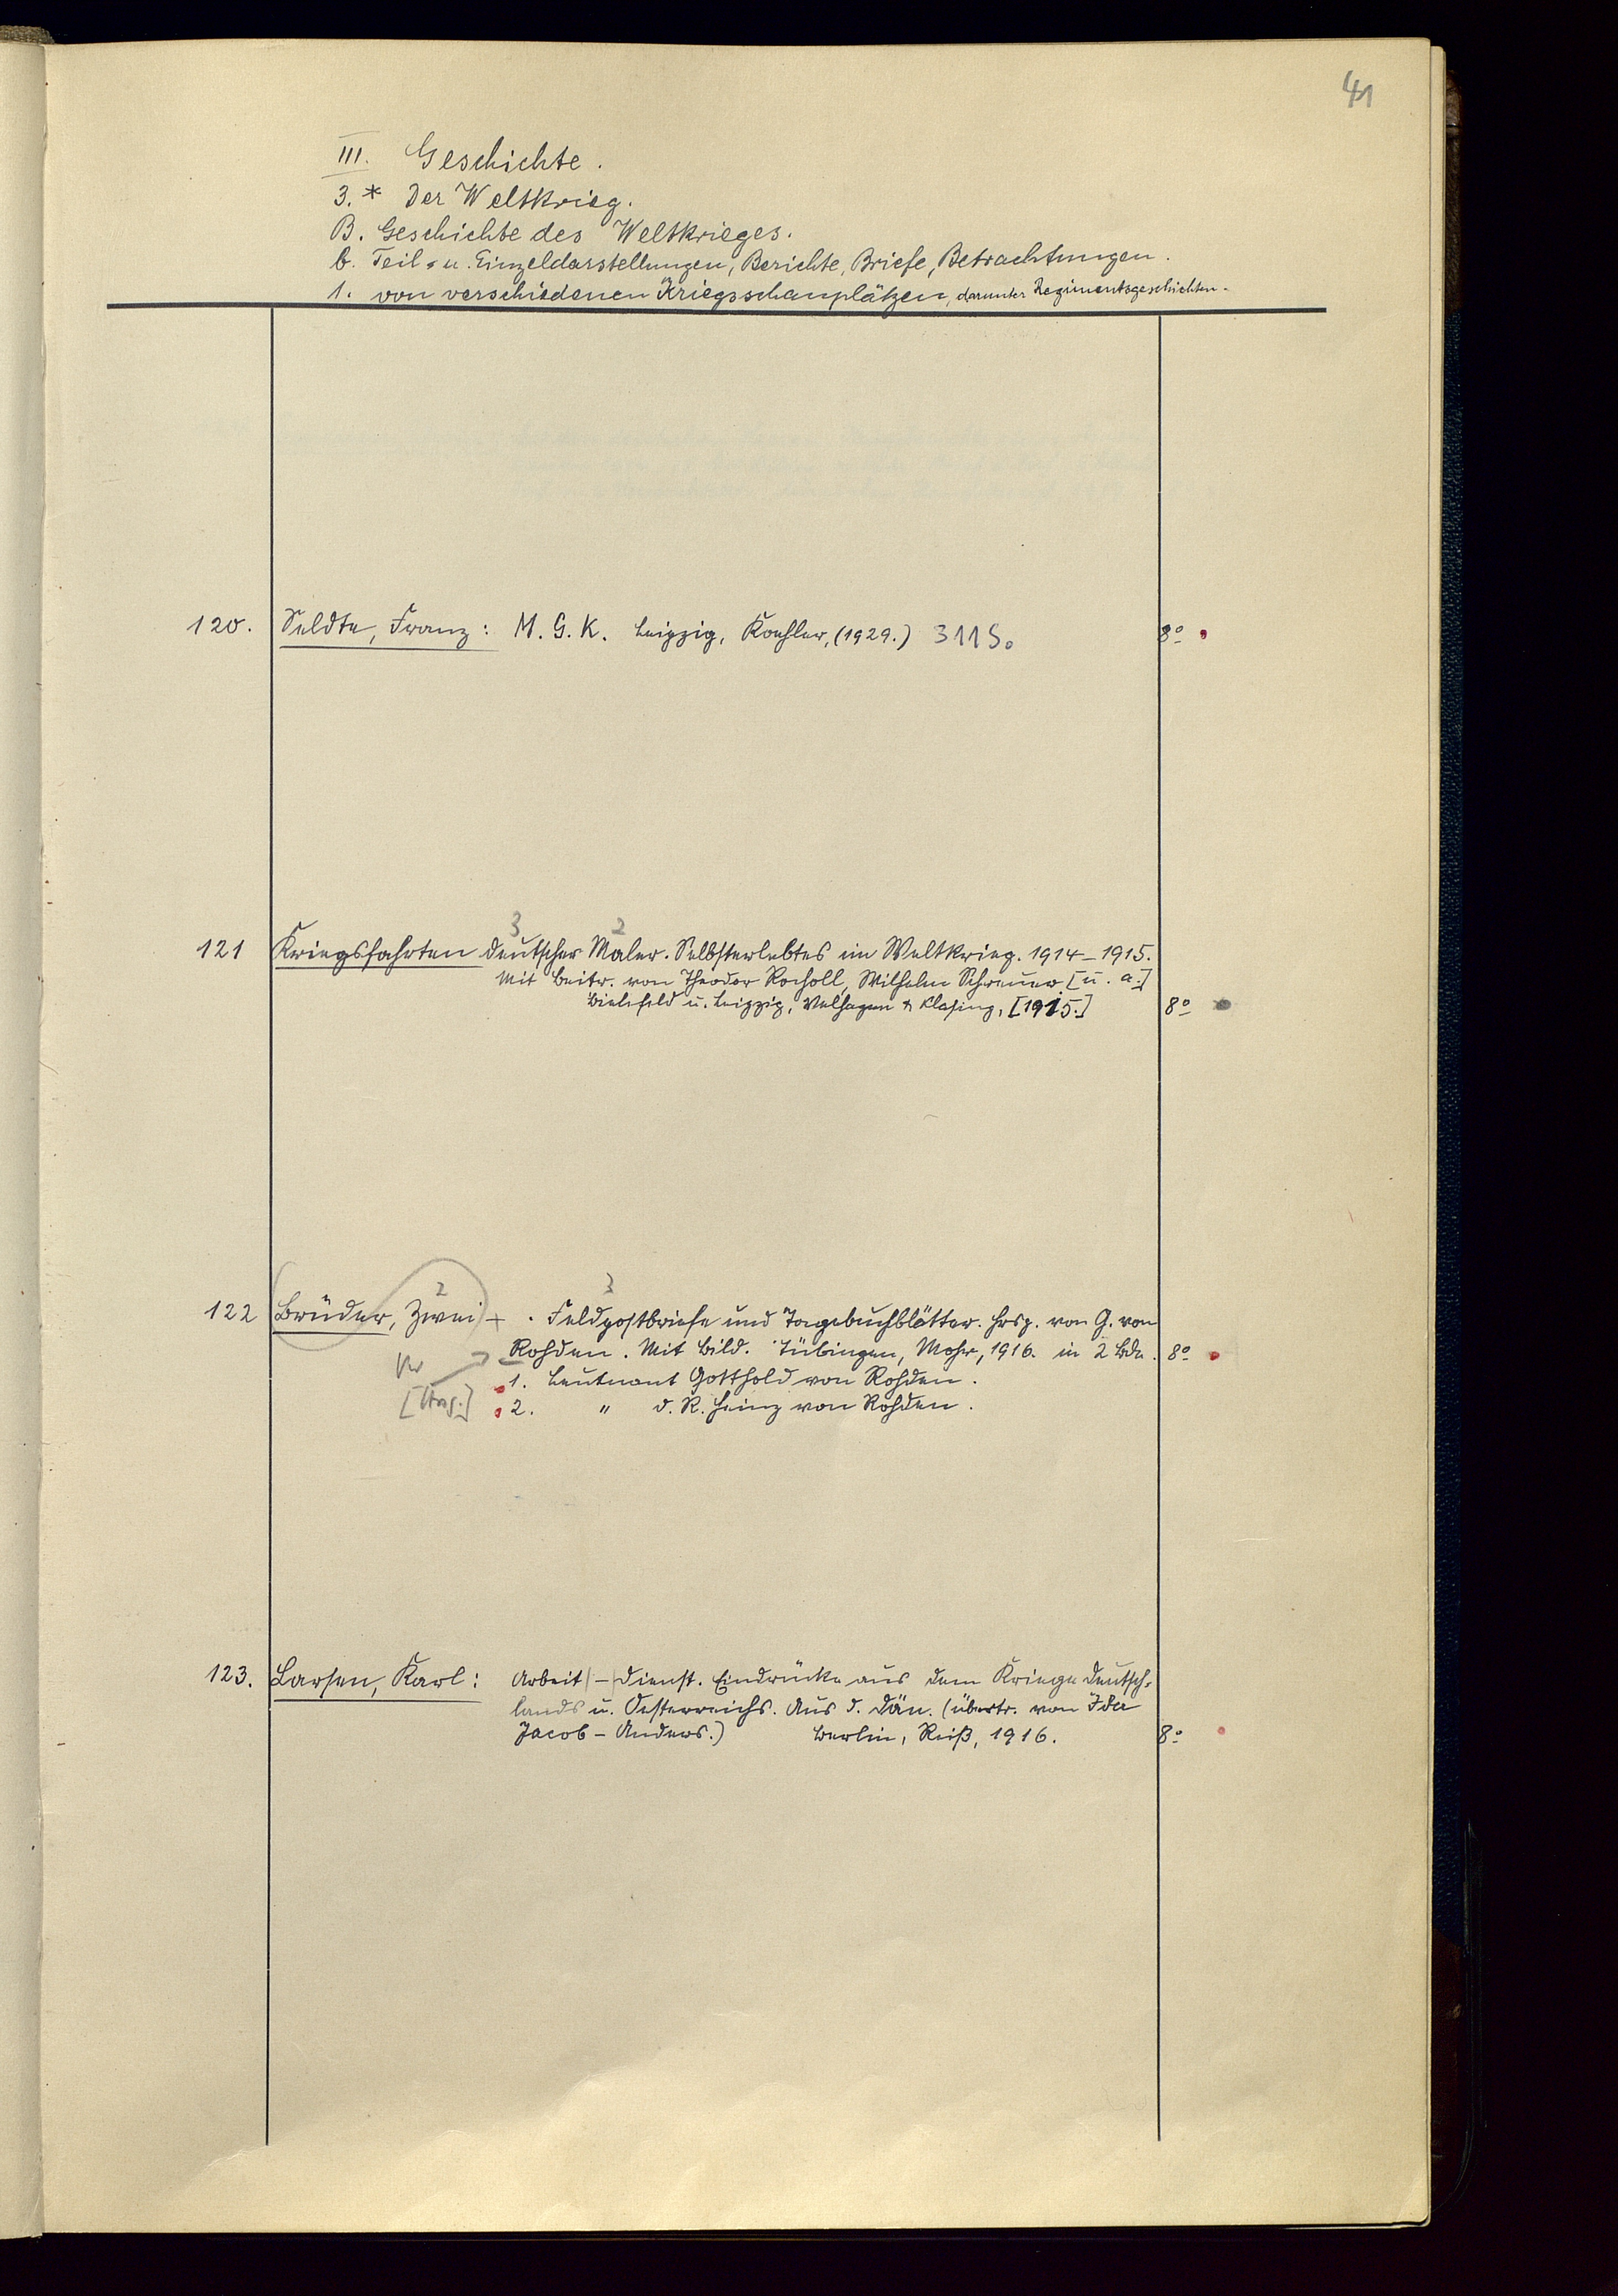 41
III. Geschichte.
3.* Der Weltkrieg.
B. Geschichte des Weltkrieges.
b. Teil- u. Einzeldarstellungen, Berichte, Briefe, Betrachtungen.
1. von verschiedenen Kriegsschauplätzen, darunter Regimentsgeschichten.
120. Seldte, Franz: M.G.K. Leipzig, Koehler, (1929.) 311 S. 8°
3 2
121 Kriegsfahrten deutscher Maler. Selbsterlebtes im Weltkrieg. 1914–1915.
Mit Beitr. von Theodor Rocholl, Wilhelm Schreuer [u. a.]
Bielefeld u. Leipzig, Velhagen & Klasing, [1915.] 8°
2 3
122 Brüder, Zwei + . Feldpostbriefe und Tagebuchblätter. Hrsg. von G. von
Rohden. Mit Bild. Tübingen, Mohr, 1916. in 2 Bdn. 8°
1. Leutnant Gotthold von Rohden.
[Hrsg.] 2. " d. R. Heinz von Rohden.
123. Larsen, Karl: Arbeit – Dienst. Eindrücke aus dem Kriege Deutsch-
lands u. Oesterreichs. Aus d. Dän. (übertr. von Ida
Jacob-Anders.) Berlin, Reiß, 1916. 8°